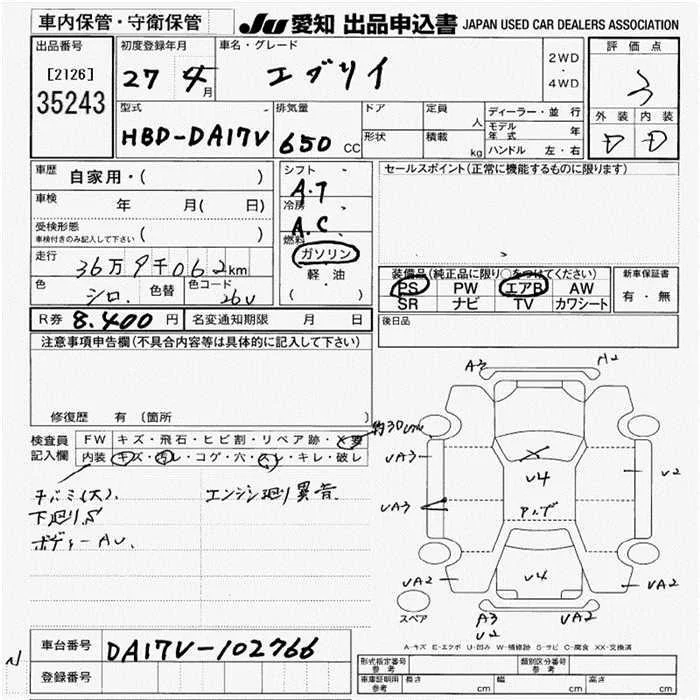 車内保管・守衛保管
JU 愛知 出品申込書 JAPAN USED CAR DEALERS ASSOCIATION
出品番号
[2126]
35243
初度登録年月
27 4月
車名・グレード
エブリイ
2WD
・
4WD
評価点
3
外装 内装
D D
型式
HBD-DA17V
排気量
650 CC
ドア
形状
定員 人
積載 kg
ディーラー・並行
モデル年式 年
ハンドル 左・右
車歴 自家用・( )
車検 年 月( 日)
受検形態
車検付きのみ記入して下さい ( )
走行 36万9千062km
色 シロ. 色替 色コード 26U
シフト
A.T
冷房
A.C.
燃料
ガソリン
軽油
( )
セールスポイント(正常に機能するものに限ります)
装備品(純正品に限り○をつけてください)
PS PW エアB AW
SR ナビ TV カワシート
新車保証書
有・無
R券 8.400円 名変通知期限 月 日
後日品
注意事項申告欄(不具合内容等は具体的に記入して下さい)
修復歴 有(箇所 )
検査員
記入欄
FW キズ・飛石・ヒビ割・リペア跡・X要
約30cm
内装 キズ・汚レ・コゲ・穴・スレ・キレ・破レ
下廻りS
ボディーAU.
エンジン廻り異音.
A3 A2
UA3
UA3
U4
U4
U2
UA2
UA2
スペア
A3
U2
UA2
A-キズ E-エクボ U-凹み W-補修跡 S-サビ C-腐食 XX-交換済
N
車台番号 DA17V-102766
登録番号
形式指定番号
参考
類別区分番号
参考
車庫証明用
参考
長さ cm 幅 cm 高さ cm